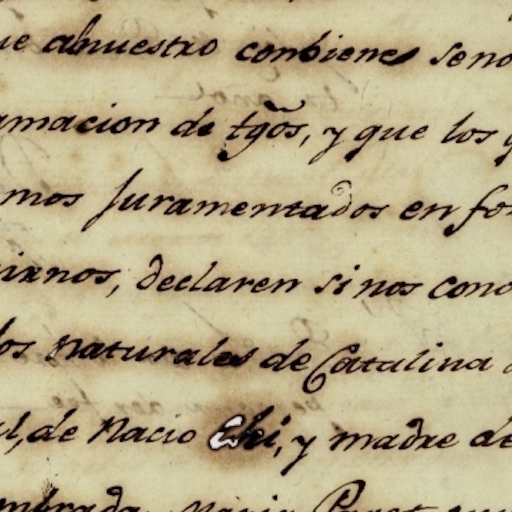 ue anuestro combiene se no
amacion de tgõs, y que los q
mos Juramentados en for
irnos, declaren si nos cono
los naturales de Catalina
l, de Nacio y madre de